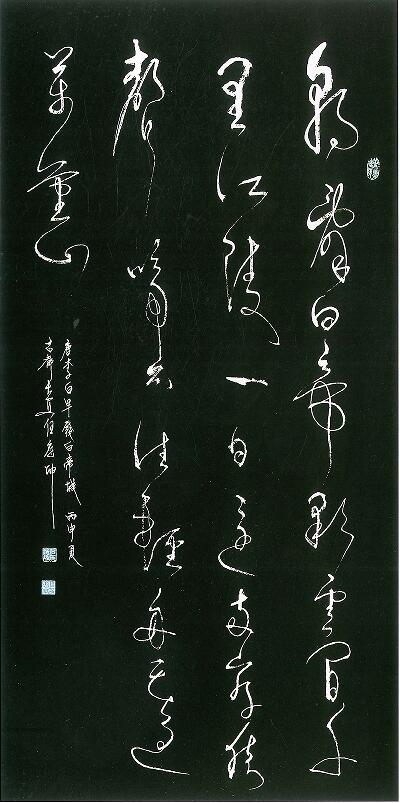 朝辭白帝彩雲間千
里江陵一日還兩岸猿
聲啼不住輕舟已過
萬重山
唐李白早發白帝城 丙申夏